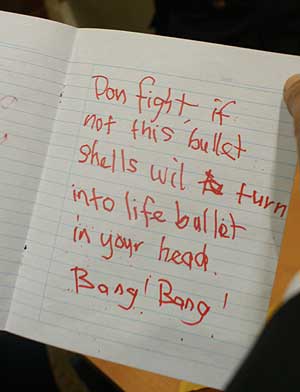 Don fight, if
not this bullet
shells wil turn
into life bullet
in your head.
Bang! Bang!